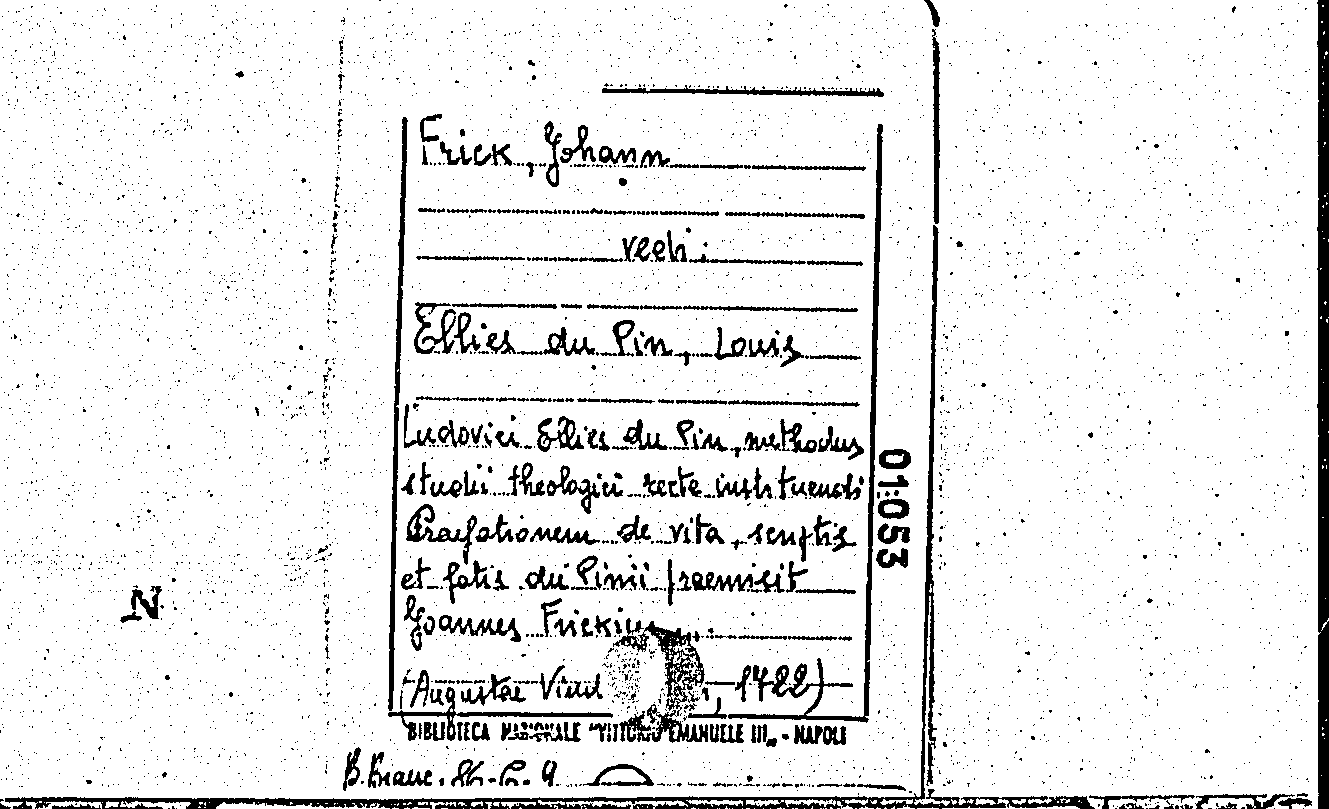 Frick, Johann
vedi:
Ellies du Pin, Louis
Ludovici Ellies du Pin, methodus
studii theologici recte instituendi
Praefationem de vita, scriptis
et fatis du Pinii praemisit
Joannes Frickius...
(Augustae Vind , 1722)
BIBLIOTECA NAZIONALE "VITTORIO EMANUELE III" - NAPOLI
B. Branc.
01:053
N